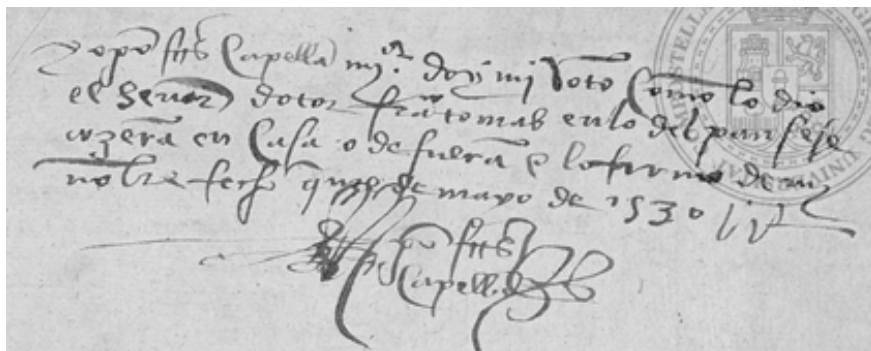 yo p° Capellan doy mi voto como lo dio
el señor dotor fra tomas en lo del pan se se
azera en casa o de fuera e lo firmo de mi
nobre fecho qnze de mayo de 1530
p°
Capellan